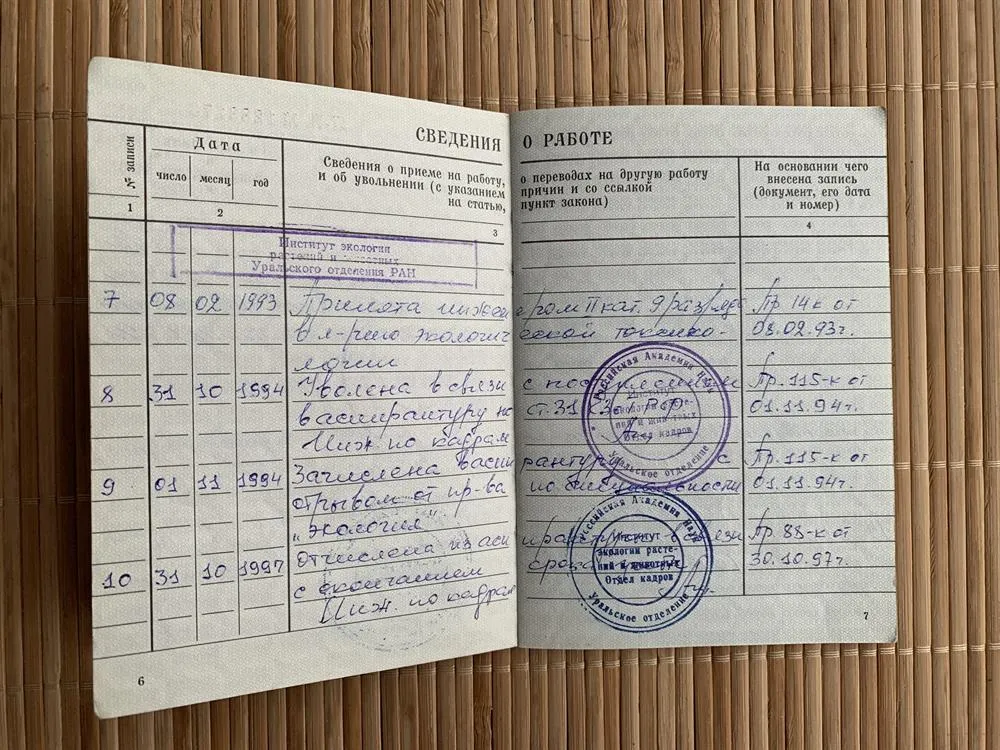 СВЕДЕНИЯ О РАБОТЕ
№ записи
Дата
число месяц год
Сведения о приеме на работу, о переводах на другую работу
и об увольнении (с указанием причин и со ссылкой
на статью, пункт закона)
На основании чего
внесена запись
(документ, его дата
и номер)
1 2 3 4
Институт экологии
растений и животных
Уральского отделения РАН
7 08 02 1993 Принята инженером II кат. 9 разряда Пр 14к от
в л-рию экологической токсико- 08.02.93г.
логии
8 31 10 1994 Уволена в связи с поступлением Пр. 115-к от
в аспирантуру ст. 31 КЗоТ РФ 01.11.94г.
Инж по кадрам
9 01 11 1994 Зачислена в аспирантуру с Пр. 115-к от
отрывом от пр-ва по специальности 01.11.94г.
"экология"
10 31 10 1997 Отчислена из аспирантуры в связи Пр. 88-к от
с окончанием срока 30.10.97г.
Инж. по кадрам
Российская Академия Наук
Институт
экологии расте-
ний и животных
Отдел кадров
Уральское отделение
Российская Академия Наук
Институт
экологии расте-
ний и животных
Отдел кадров
Уральское отделение
6
7